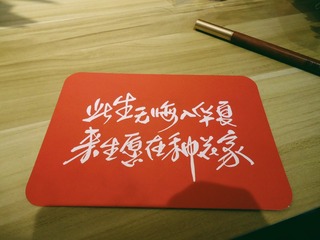 此生无悔入华夏
来生愿在种花家